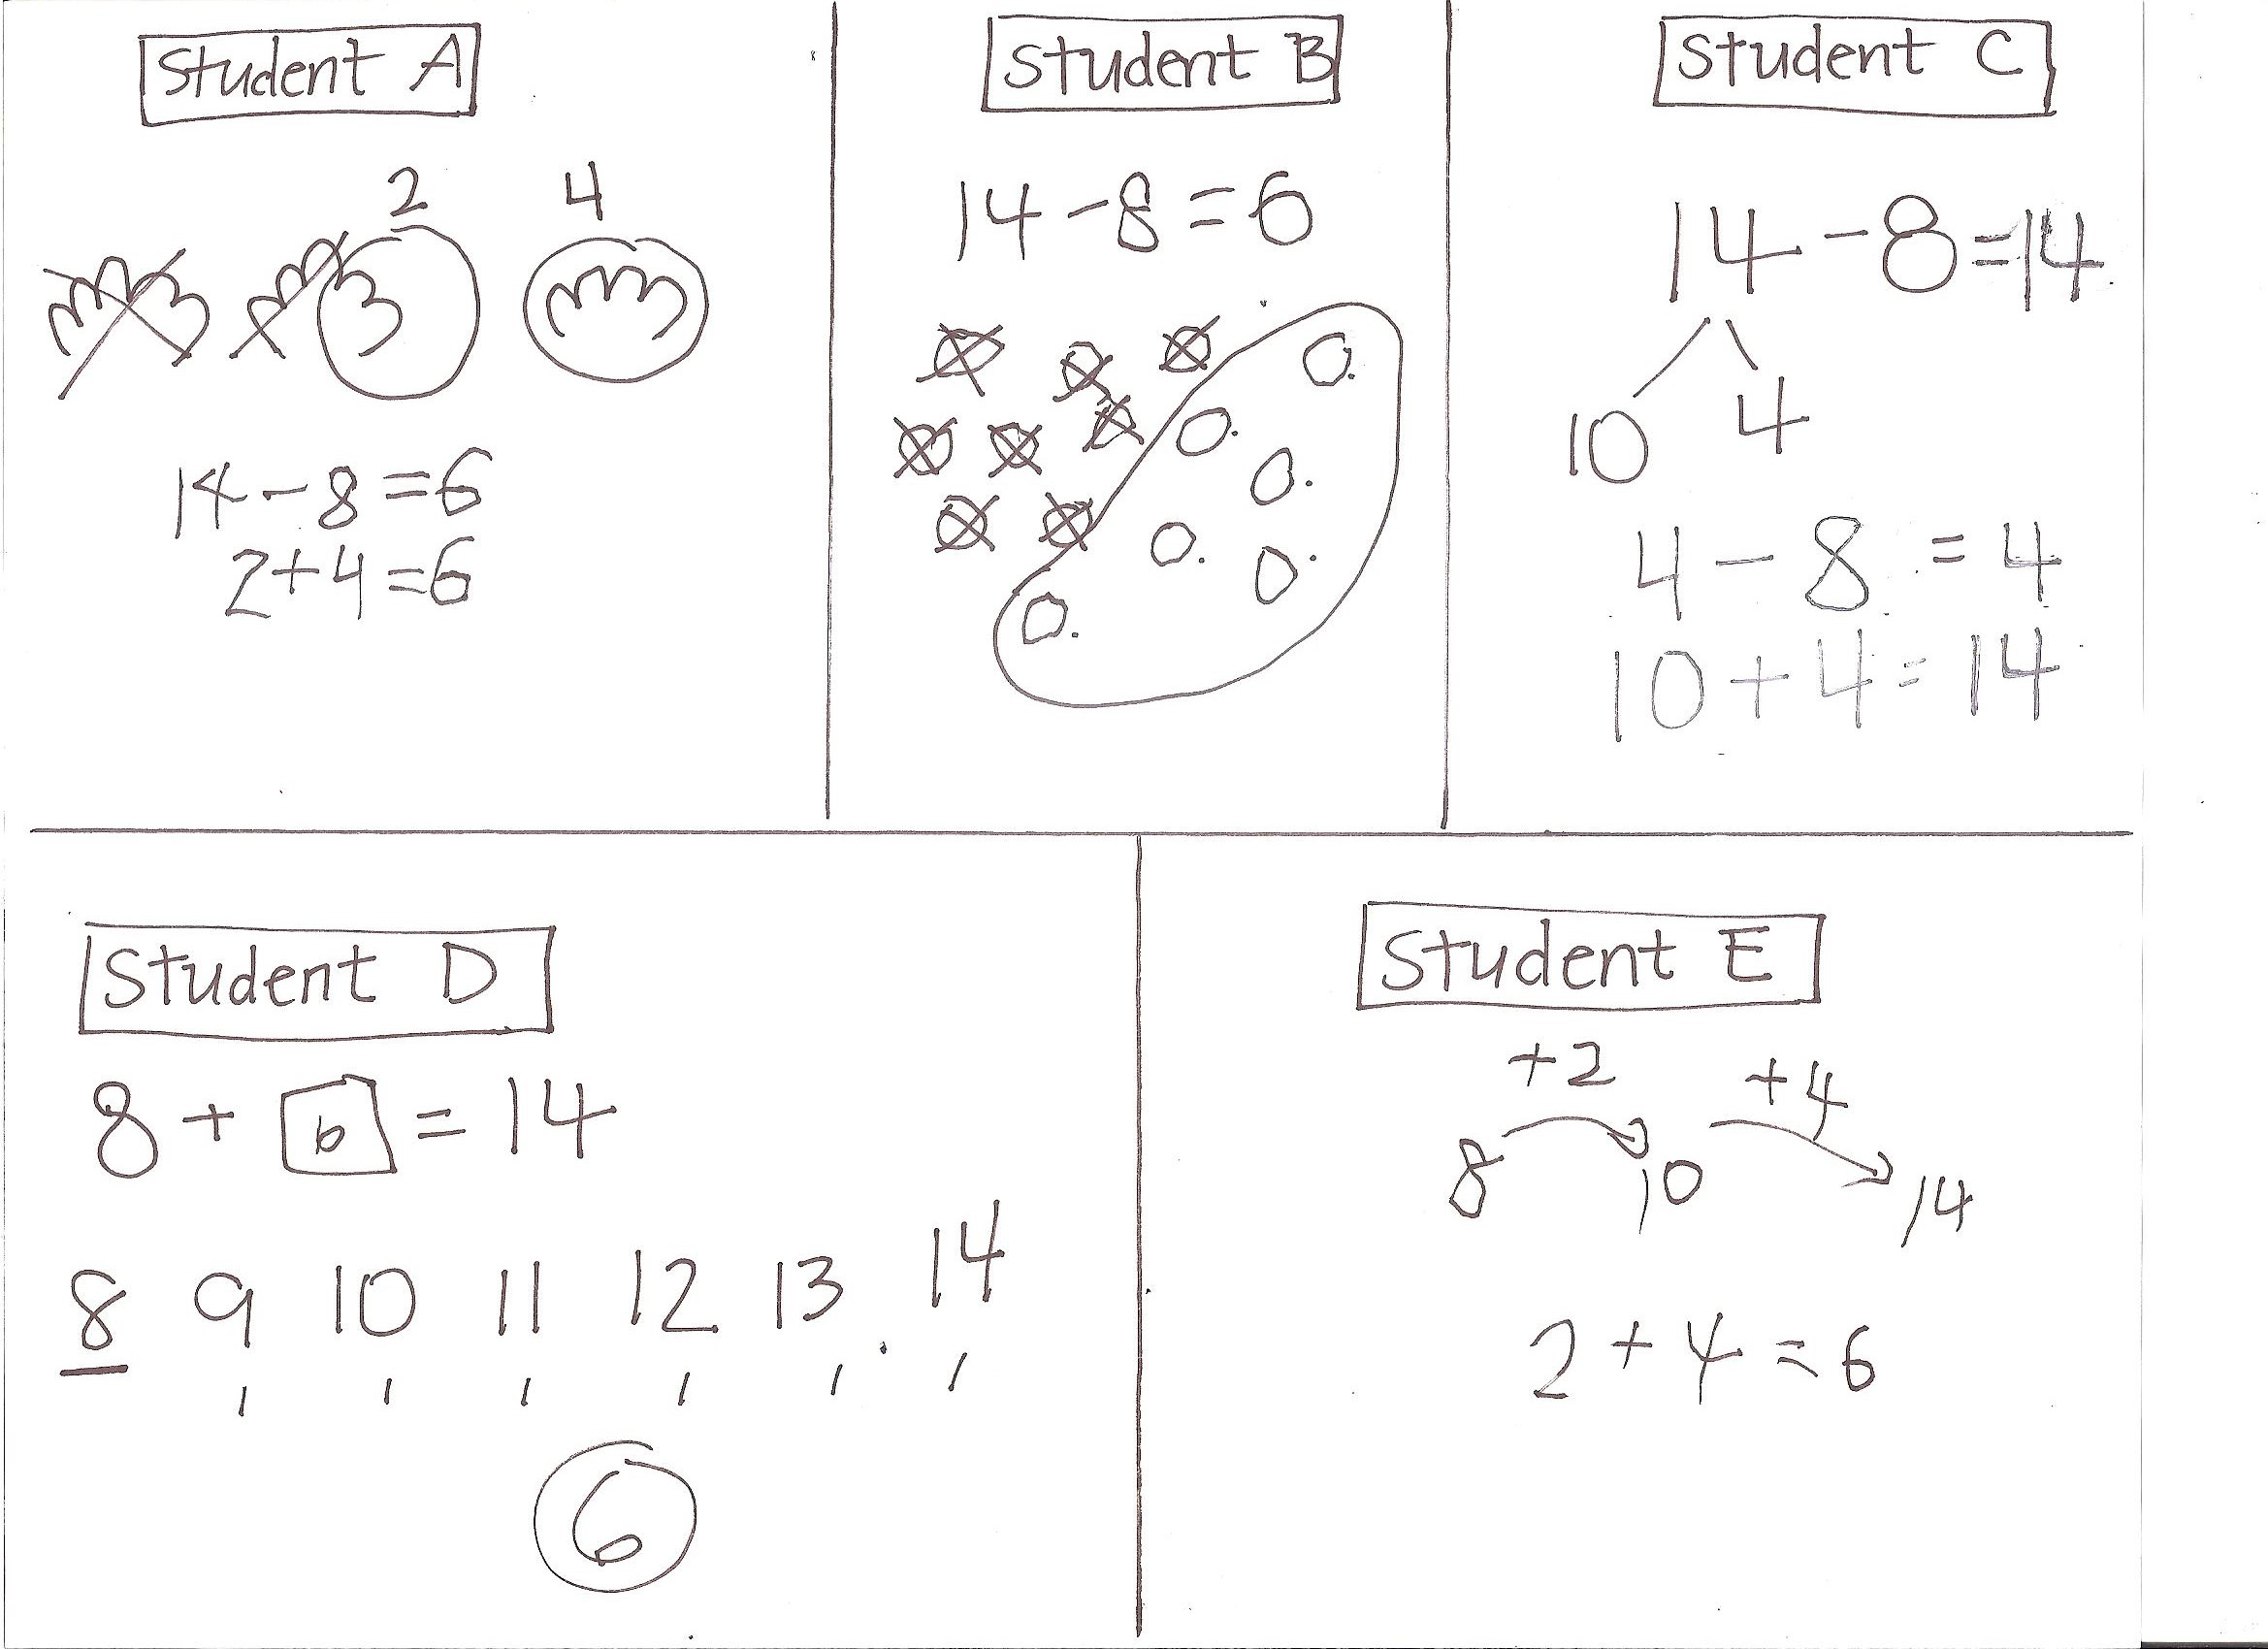 Student A
2 4
14 - 8 = 6
2 + 4 = 6
Student B
14 - 8 = 6
Student C
14 - 8 = 14
10 4
4 - 8 = 4
10 + 4 = 14
Student D
8 + 6 = 14
8 9 10 11 12 13 14
6
Student E
+2 +4
8 10 14
2 + 4 = 6